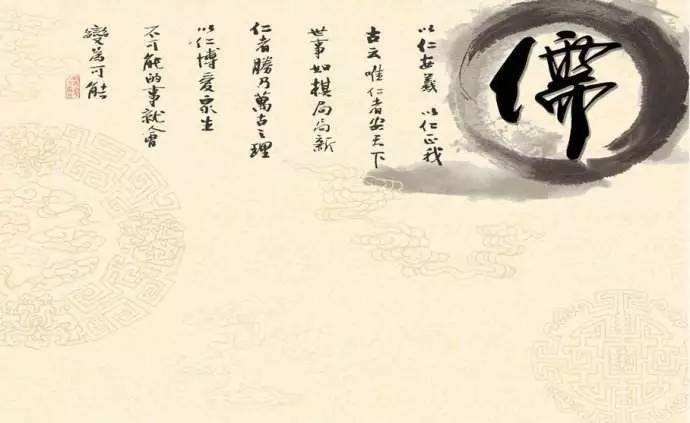 儒
以仁安義 以仁正我
古云唯仁者安天下
世事如棋局局新
仁者勝乃萬古之理
以仁博愛眾生
不可能的事就會
變為可能